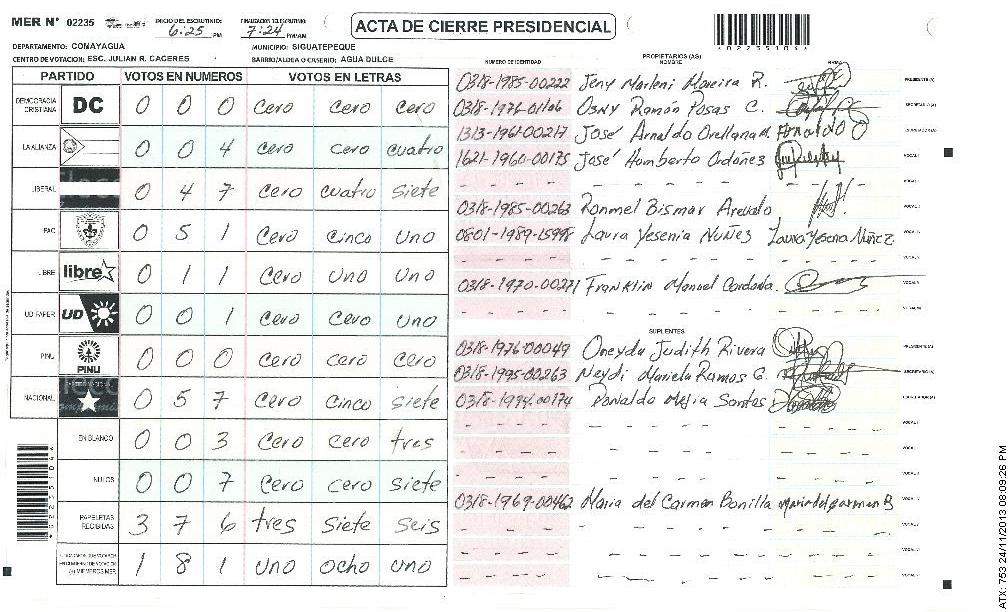 MER N° 02235
INICIO DEL ESCRUTINIO: 6:25 PM
7:24 PM/AM
ACTA DE CIERRE PRESIDENCIAL
DEPARTAMENTO: COMAYAGUA
MUNICIPIO: SIGUATEPEQUE
CENTRO DE VOTACION: ESC. JULIAN R. CACERES
BARRIO/ALDEA O CASERIO: AGUA DULCE
PARTIDO VOTOS EN NUMEROS VOTOS EN LETRAS
DEMOCRACIA CRISTIANA DC 0 0 0 cero cero cero
LA ALIANZA 0 0 4 cero cero cuatro
LIBERAL 0 4 7 cero cuatro siete
PAC 0 5 1 cero cinco uno
LIBRE libre 0 1 1 cero uno uno
UD FAPER UD 0 0 1 cero cero uno
PINU PINU 0 0 0 cero cero cero
NACIONAL 0 5 7 cero cinco siete
EN BLANCO 0 0 3 cero cero tres
NULOS 0 0 7 cero cero siete
PAPELETAS RECIBIDAS 3 7 6 tres siete seis
1 8 1 uno ocho uno
NUMERO DE IDENTIDAD
PROPIETARIOS (AS)
NOMBRE
FIRMA
0318-1985-00222 Jeny Marleni Moreira R. PRESIDENTE (A)
0318-1976-01106 Osny Ramón Posas C. SECRETARIO (A)
1313-1961-00217 José Arnaldo Orellana M. Arnaldo O
1621-1960-00175 José Humberto Ordóñez VOCAL
0318-1985-00263 Ronmel Bismar Arevalo
0801-1989-15998 Laura Yesenia Nuñez Laura Yesenia Nuñez
0318-1970-00271 Franklin Manuel Cardona.
SUPLENTES
0318-1976-00049 Oneyda Judith Rivera PRESIDENTE (A)
0318-1995-00263 Neydi Mariela Ramos G. SECRETARIO (A)
0318-1994-00174 Ronaldo Mejia Santos
0318-1969-00462 Maria del Carmen Bonilla Maria del carmen B
ATX: 753 24/11/2013 08:09:26 PM